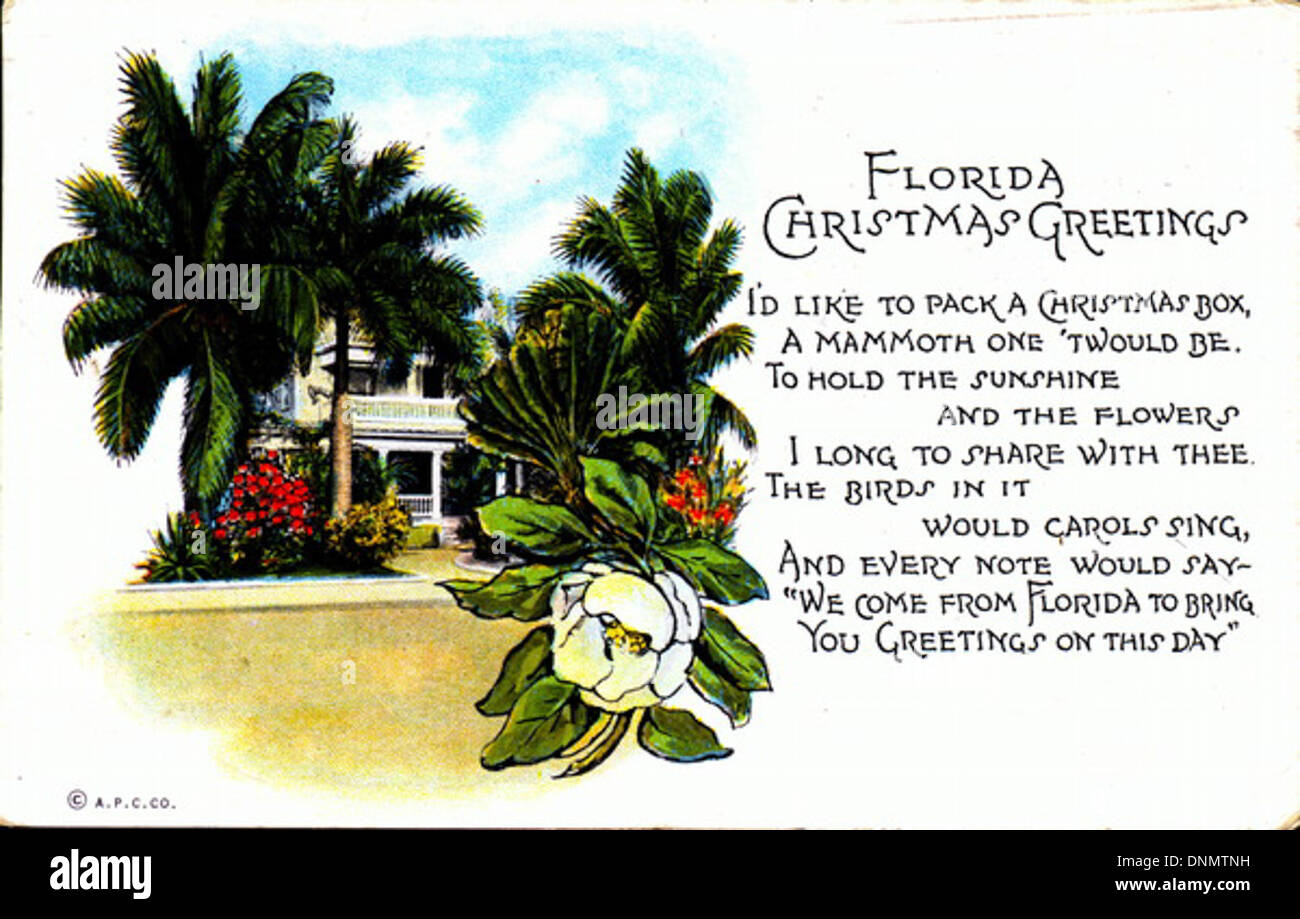 FLORIDA
CHRISTMAS GREETINGS
I'D LIKE TO PACK A CHRISTMAS BOX,
A MAMMOTH ONE 'TWOULD BE.
TO HOLD THE SUNSHINE
AND THE FLOWERS
I LONG TO SHARE WITH THEE.
THE BIRDS IN IT
WOULD CAROLS SING,
AND EVERY NOTE WOULD SAY~
"WE COME FROM FLORIDA TO BRING
YOU GREETINGS ON THIS DAY"
© A.P.C.CO.
alamy
a
alamy
a
a
a
alamy
Image ID: DNMTNH
www.alamy.com